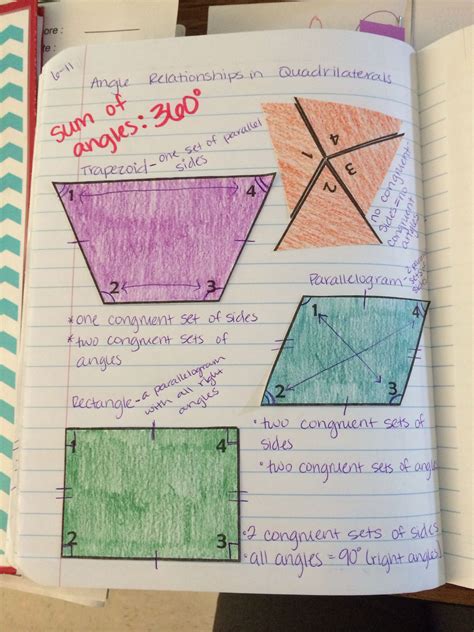 ore :
re :
6-11
Angle Relationships in Quadrilaterals
sum of
angles: 360°
Trapezoid - one set of parallel
sides
1 4
2 3
*one congruent set of sides
*two congruent sets of
angles
4
1
3
2
no congruent
sides = no
congruent
angles
Parallelogram - 2
1 4
2 3
• two congruent sets of
sides
• two congruent sets of angles
Rectangle - a parallelogram
with all right
angles
1 4
2 3
• 2 congruent sets of sides
• all angles = 90° (right angles)